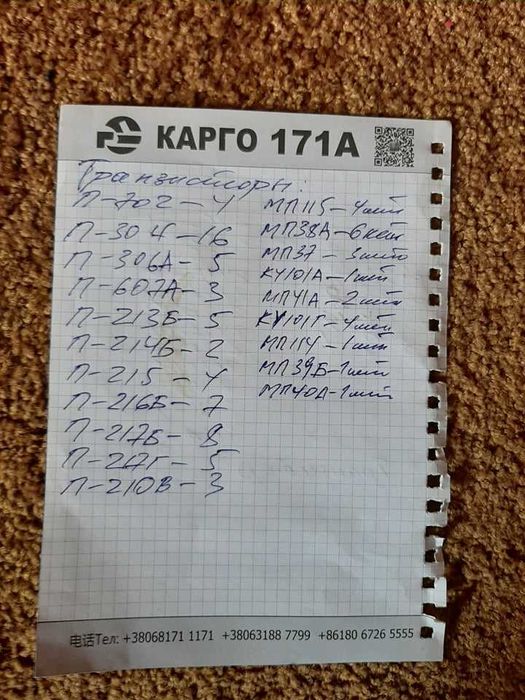 КАРГО 171А
Транзисторы:
П-702-4
П-304-16
П-306А-5
П-607А-3
П-213Б-5
П-214Б-2
П-215-4
П-216Б-7
П-217Б-8
П-217Г-5
П-210В-3
МП115-4шт
МП38А-6шт
МП37-3шт
КУ101А-1шт
МП41А-2шт
КУ101Г-4шт
МП114-1шт
МП39Б-1шт
МП40А-1шт
电话Тел: +38068171 1171 +38063188 7799 +86180 6726 5555